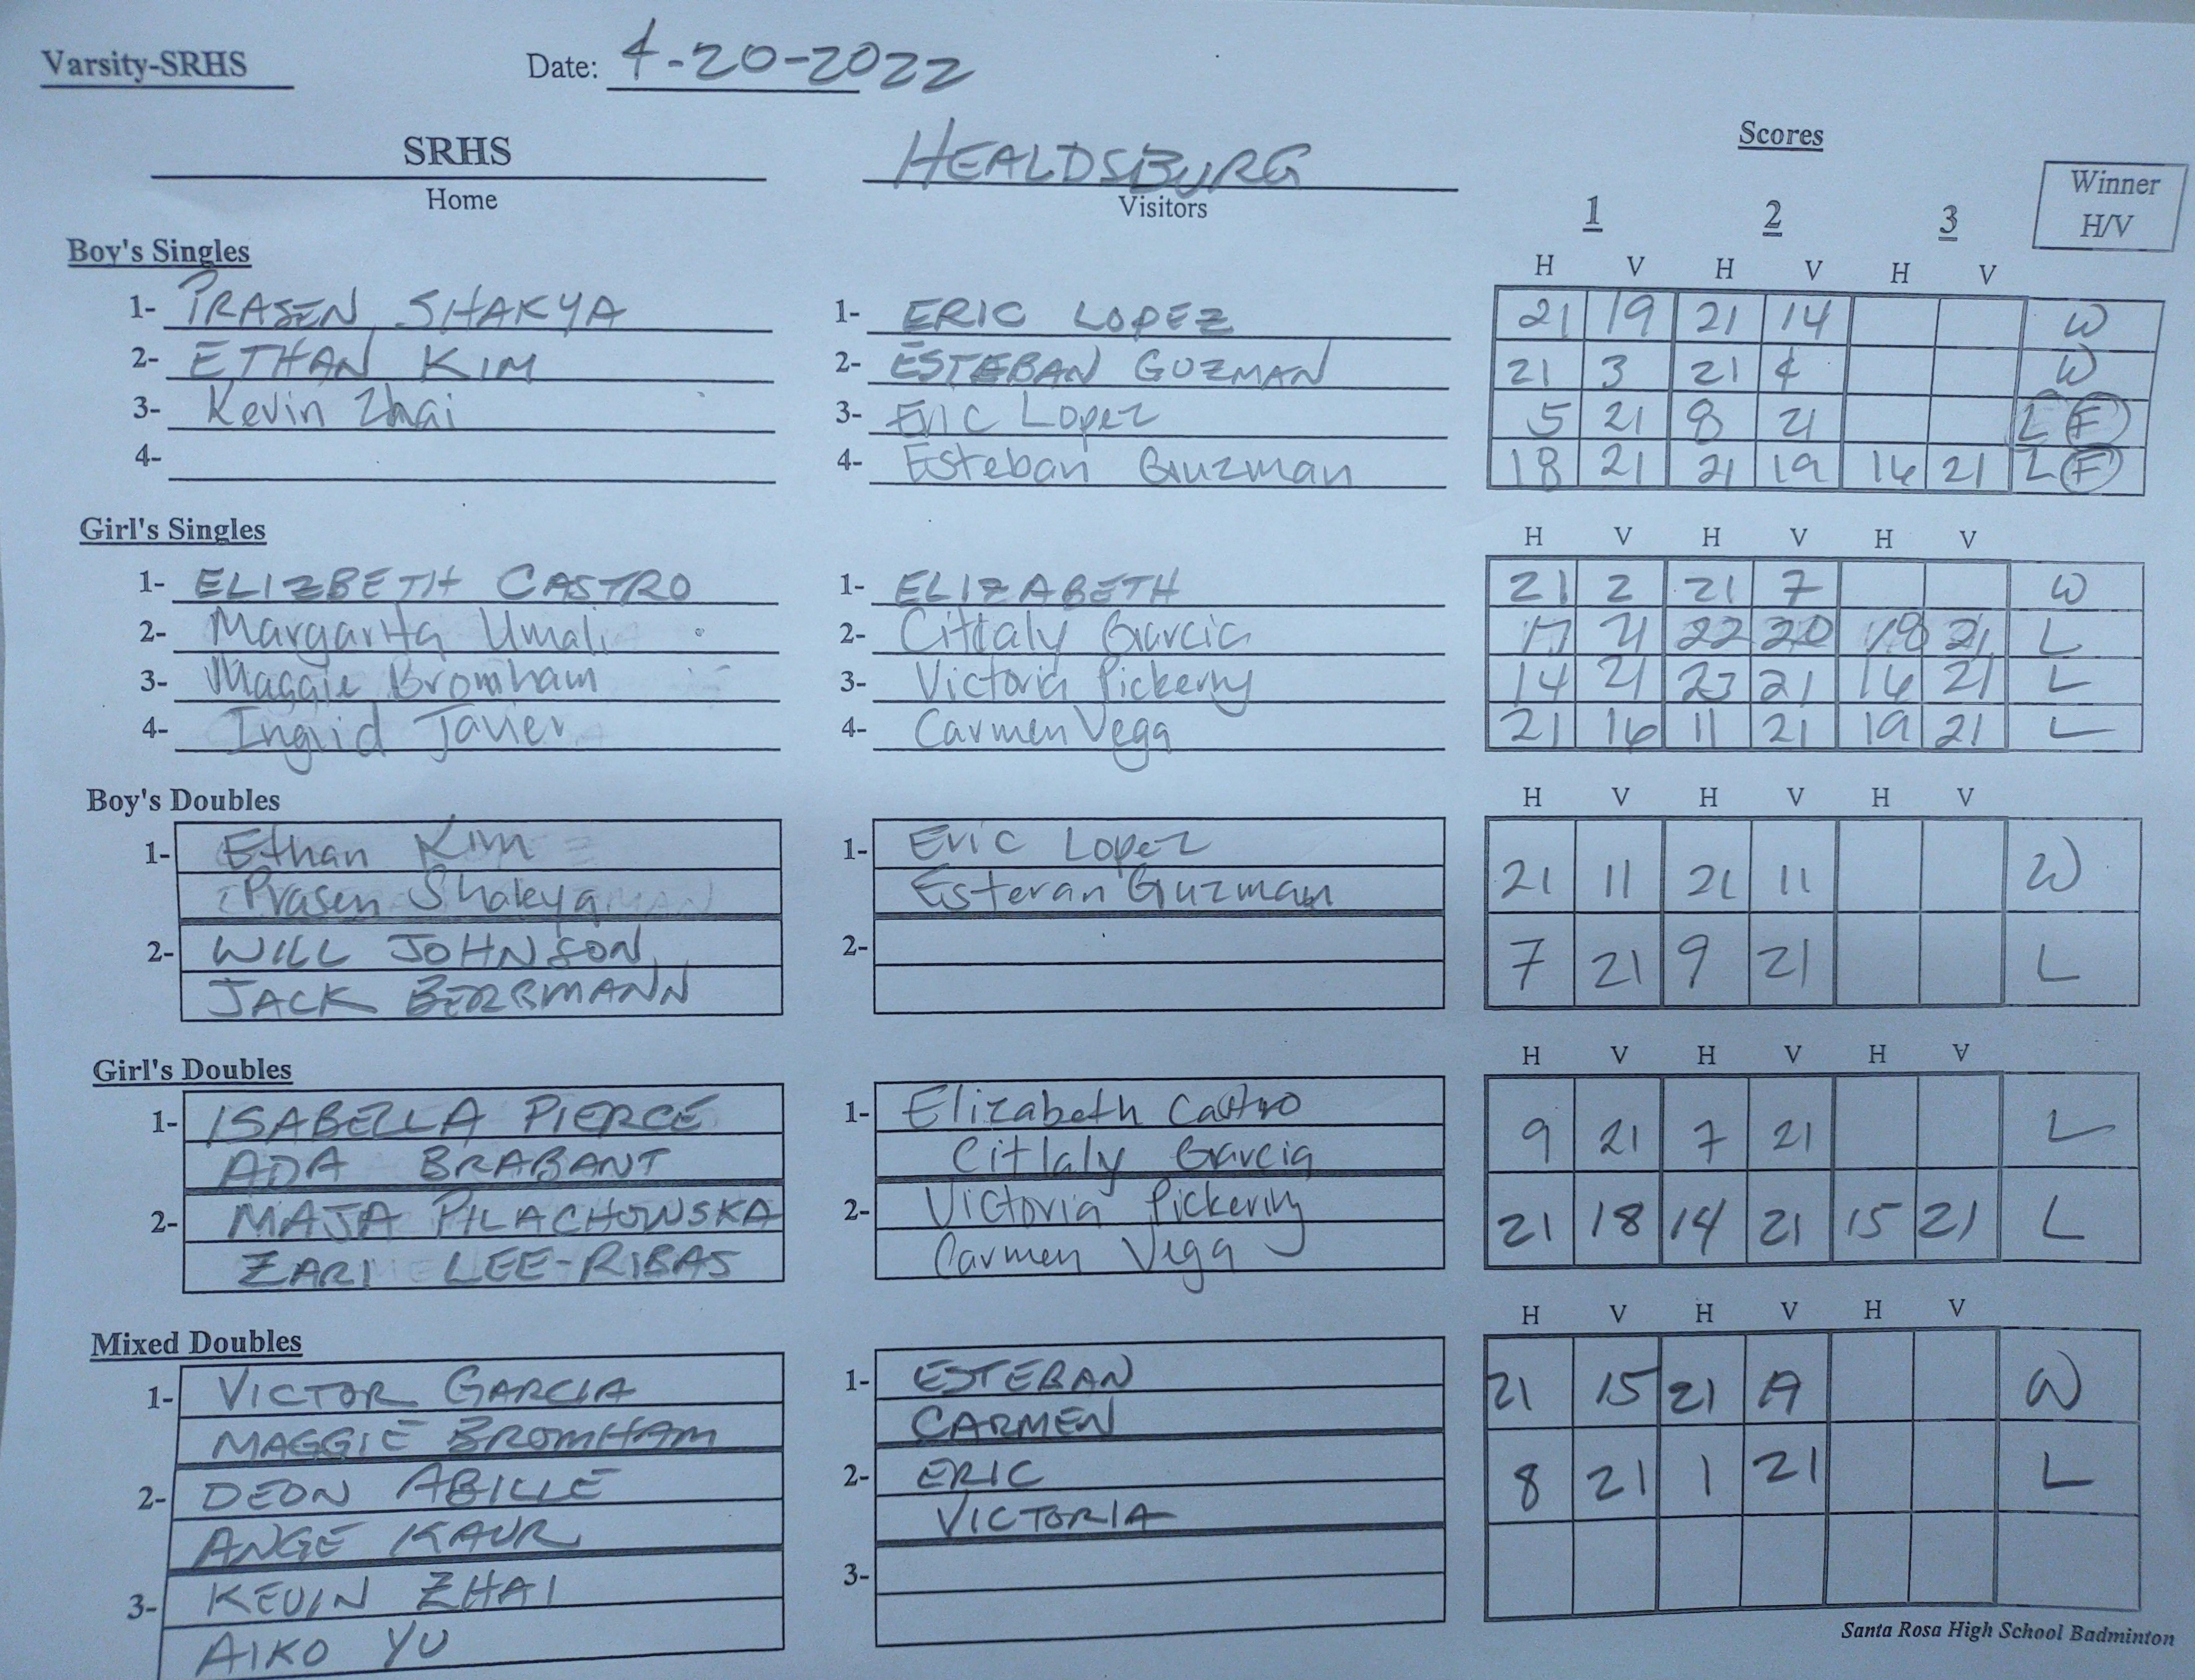 Varsity-SRHS Date: 4-20-2022
SRHS HEALDSBURG Scores
Home Visitors 1 2 3 Winner H/V
Boy's Singles H V H V H V
1- PRASEN SHAKYA 1- ERIC LOPEZ 21 19 21 14 W
2- ETHAN KIM 2- ESTEBAN GUZMAN 21 3 21 4 W
3- Kevin Zhai 3- Eric Lopez 5 21 8 21 L F
4- 4- Esteban Guzman 18 21 21 19 16 21 L F
Girl's Singles H V H V H V
1- ELIZBETH CASTRO 1- ELIZABETH 21 2 21 7 W
2- Margarita Umali 2- Citlaly Garcia 17 21 22 20 18 21 L
3- Maggie Bromham 3- Victoria Pickerny 14 21 23 21 16 21 L
4- Ingrid Javier 4- Carmen Vega 21 16 11 21 19 21 L
Boy's Doubles H V H V H V
1- Ethan Kim 1- Eric Lopez 21 11 21 11 W
Prasen Shakya Esteran Guzman
2- WILL JOHNSON 2- 7 21 9 21 L
JACK
Girl's Doubles H V H V H V
1- ISABELLA PIERCE 1- Elizabeth Castro 9 21 7 21 L
ADA BRABANT Citlaly Garcia
2- MAJA PILACHOWSKA 2- Victoria Pickerny 21 18 14 21 15 21 L
ZARI LEE-RIBAS Carmen Vega
Mixed Doubles H V H V H V
1- VICTOR GARCIA 1- ESTEBAN 21 15 21 19 W
MAGGIE BROMHAM CARMEN
2- DEON ABILLE 2- ERIC 8 21 1 21 L
ANGE KAUR VICTORIA
3- KEVIN ZHAI 3-
AIKO YU
Santa Rosa High School Badminton